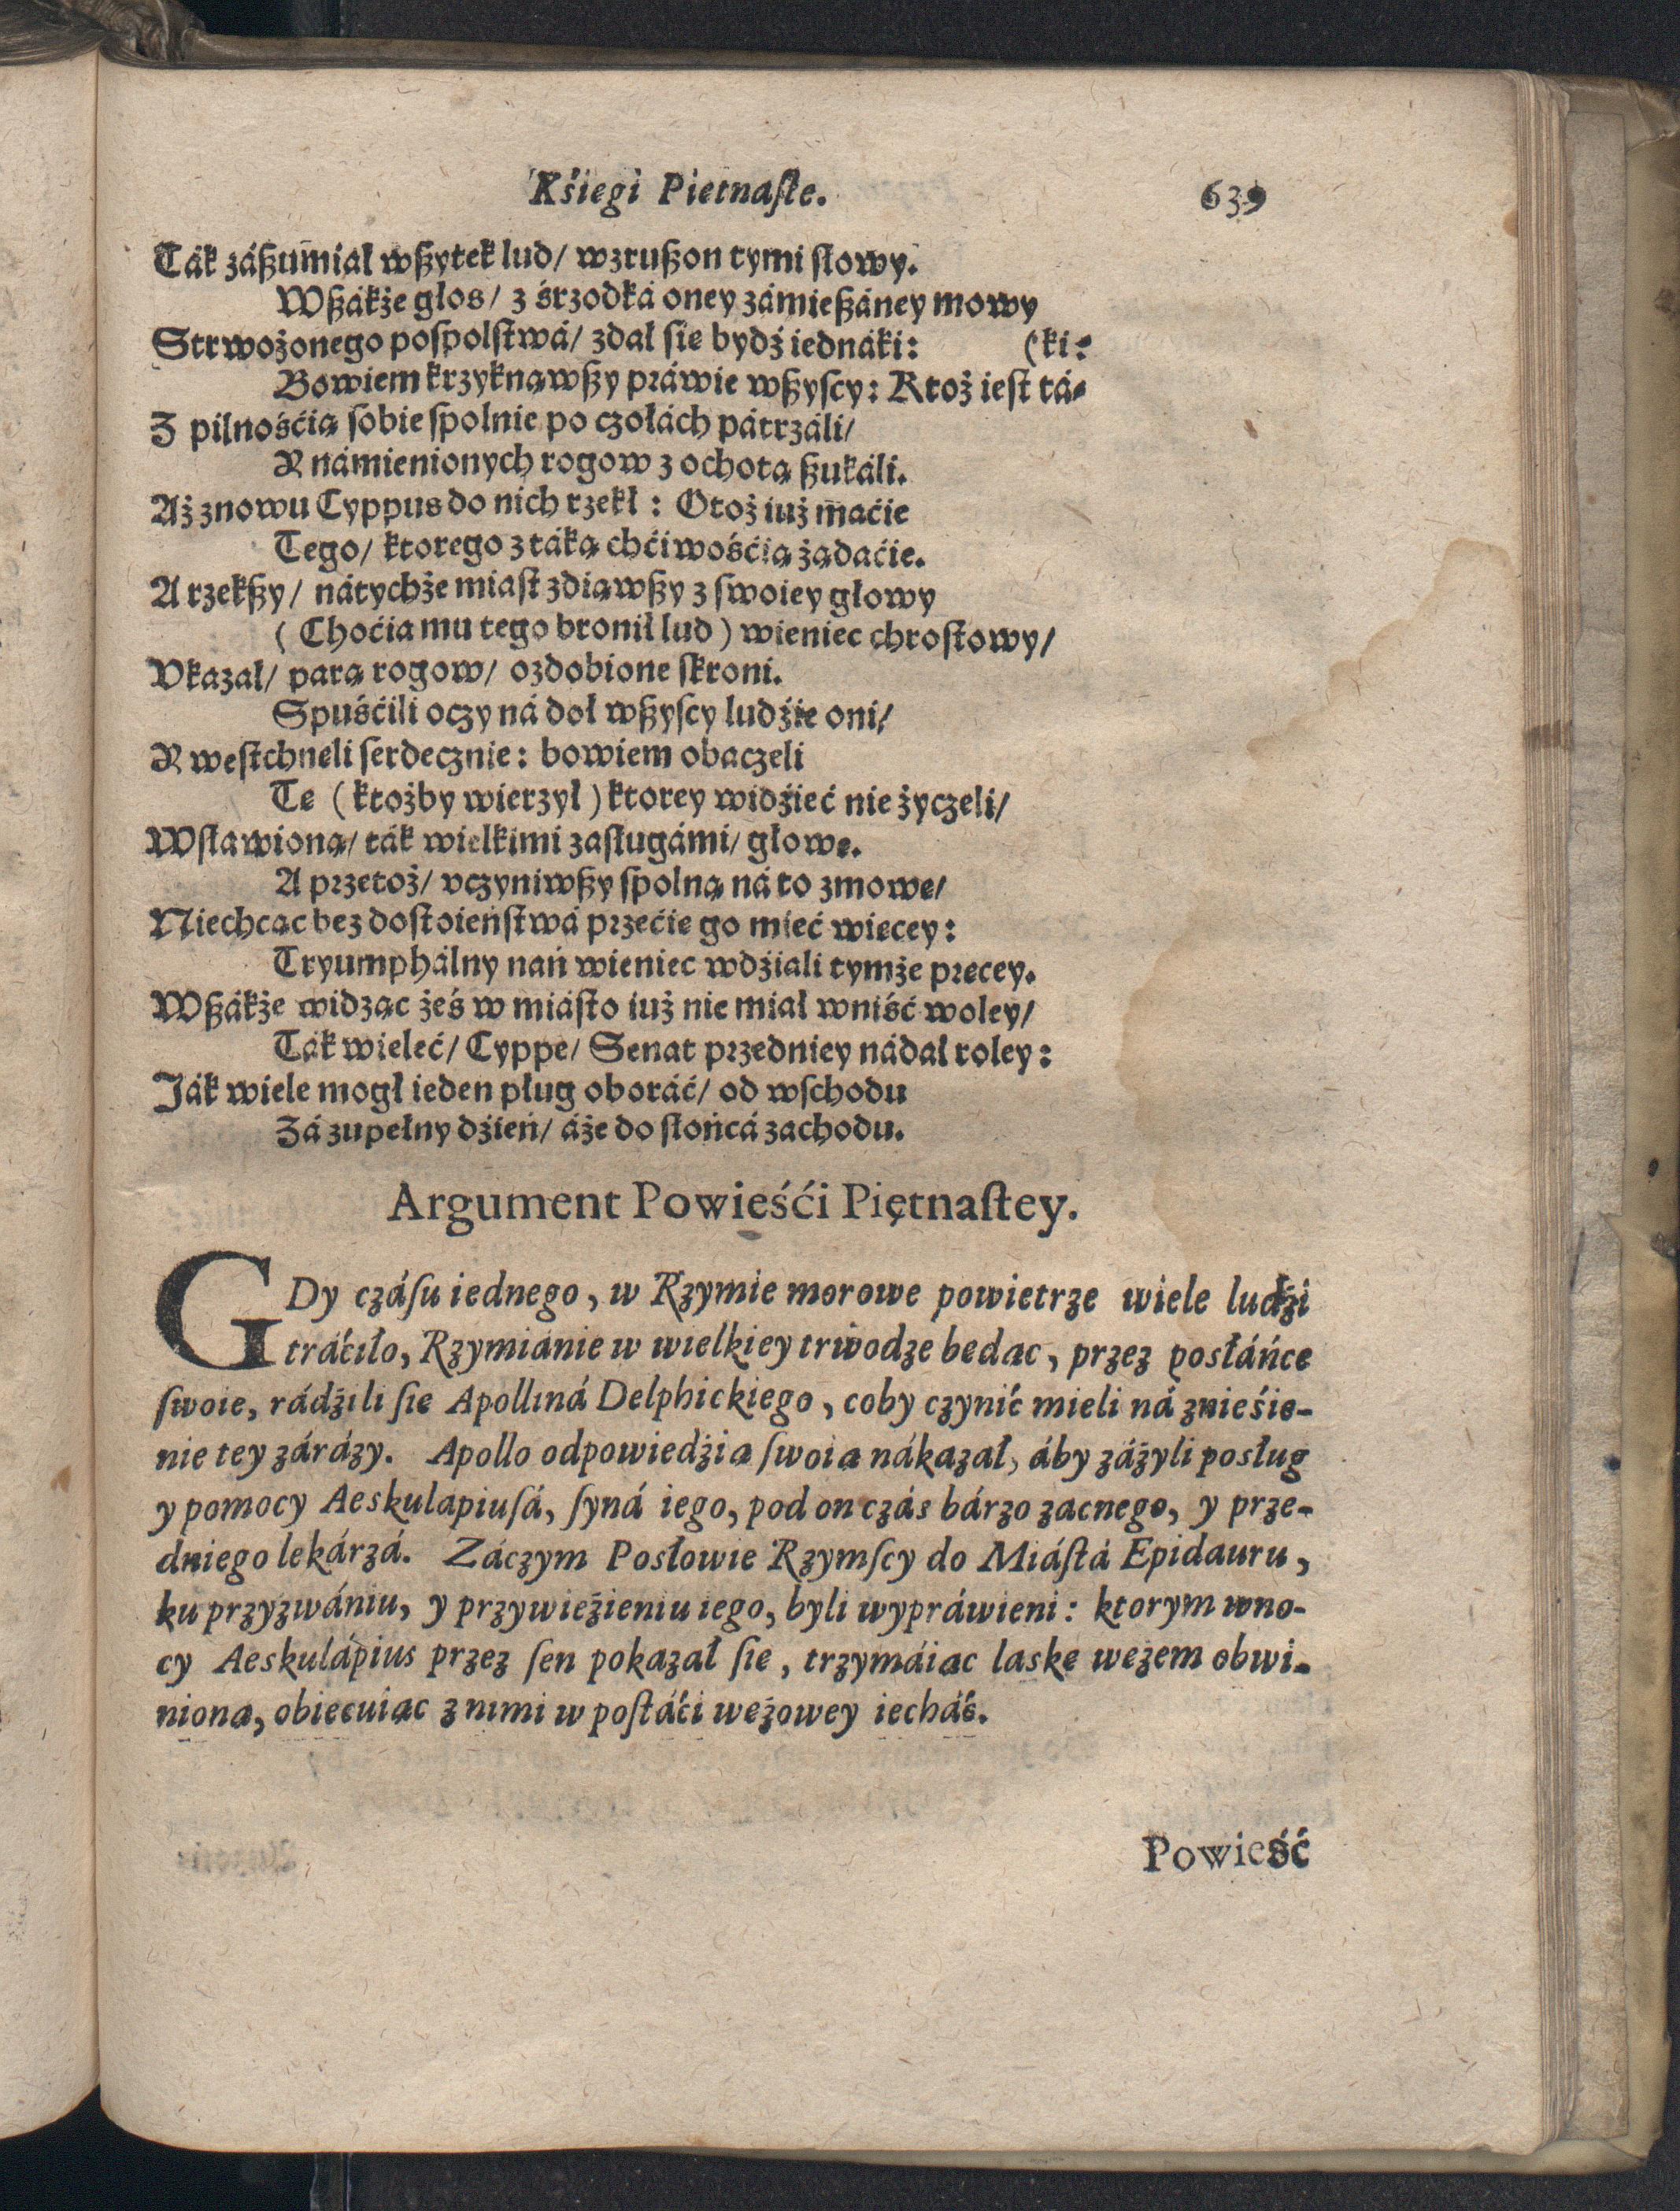 Kśiegi Pietnaſte. 639
Ták zászumiał wszytek lud/ wzruszon tymi słowy.
Wszákże głos/ z śrzodká oney zámieszáney mowy
Strwożonego poſpolſtwá/ zdał ſie bydź iednáki: (ki:
Bowiem krzyknąwszy práwie wszyſcy: Ktoż ieſt tá-
Z pilnośćią ſobie ſpolnie po czołách pátrzáli/
Y námienionych rogow z ochotą szukáli.
Aż znowu Cyppus do nich rzekł: Otoż iuż maćie
Tego/ ktorego z táką chćiwośćią żądaćie.
A rzekszy/ nátychże miaſt zdiąwszy z ſwoiey głowy
(Choćia mu tego bronił lud) wieniec chroſtowy/
Vkazał/ parą rogow/ ozdobione ſkroni.
Spuśćili oczy ná doł wszyſcy ludźie oni/
Y weſtchneli ſerdecznie: bowiem obaczeli
Te (ktożby wierzył) ktorey widźieć nie życzeli/
Wſławioną/ ták wielkimi zasługámi/ głowę.
A przetoż/ vczyniwszy ſpolną ná to zmowę/
Niechcąc bez doſtoieńſtwá przećie go mieć więcey:
Tryumphálny nań wieniec wdźiali tymże pręcey.
Wszákże widząc żeś w miáſto iuż nie miał wniść woley/
Ták wieleć/ Cyppe/ Senat przedniey nádał roley:
Ják wiele mogł ieden pług oboráć/ od wſchodu
Zá zupełny dźień/ áże do słońcá zachodu.
Argument Powieśći Piętnaſtey.
GDy czáſu iednego, w Rzymie morowe powietrze wiele ludźi
tráćiło, Rzymiánie w wielkiey trwodze będąc, przez posłáńce
ſwoie, rádźili ſie Apolliná Delphickiego, coby czynić mieli ná znieśie-
nie tey zárázy. Apollo odpowiedźią ſwoią nákazał, áby záżyli posług
y pomocy Aeskulapiuſá, ſyná iego, pod on czás bárzo zacnego, y prze-
dniego lekárzá. Záczym Posłowie Rzymſcy do Miáſtá Epidauru,
ku przyzwániu, y przywieźieniu iego, byli wypráwieni: ktorym wno-
cy Aeskulápius przez ſen pokazał ſie, trzymáiąc laskę wężem obwi-
nioną, obiecuiąc z nimi w poſtáći wężowey iecháć.
Powieść